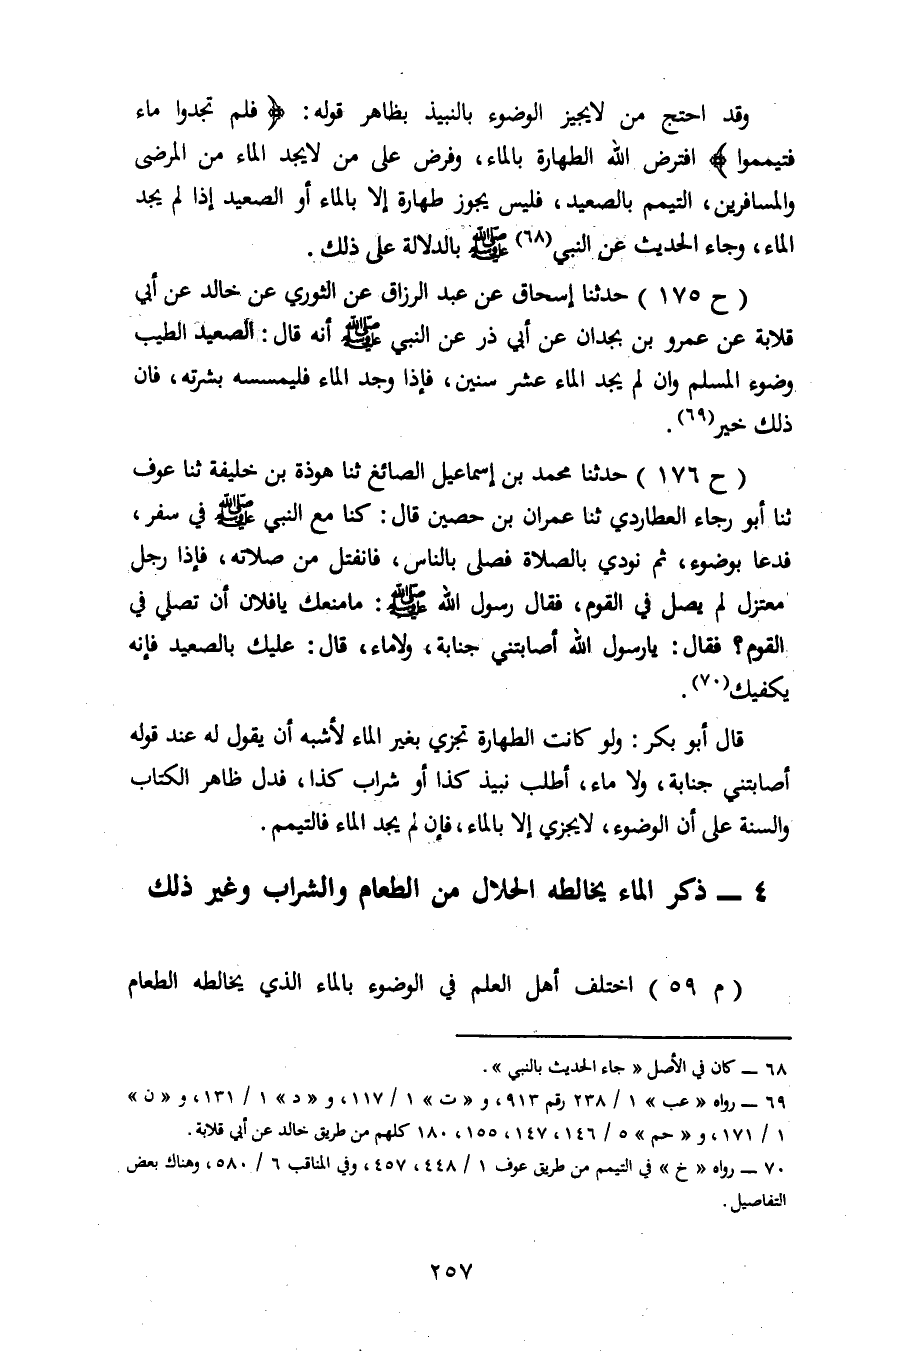 وقد احتج من لايجيز الوضوء بالنبيذ بظاهر قوله: ﴿ فلم تجدوا ماء
فتيمموا ﴾ افترض الله الطهارة بالماء، وفرض على من لايجد الماء من المرضى
والمسافرين، التيمم بالصعيد، فليس يجوز طهارة إلا بالماء أو الصعيد إذا لم يجد
الماء، وجاء الحديث عن النبي(٦٨) ﷺ بالدلالة على ذلك.
( ح ١٧٥ ) حدثنا إسحاق عن عبد الرزاق عن الثوري عن خالد عن أبي
قلابة عن عمرو بن بجدان عن أبي ذر عن النبي ﷺ أنه قال: الصعيد الطيب
وضوء المسلم وان لم يجد الماء عشر سنين، فإذا وجد الماء فليمسسه بشرته، فان
ذلك خير(٦٩).
( ح ١٧٦ ) حدثنا محمد بن إسماعيل الصائغ ثنا هوذة بن خليفة ثنا عوف
ثنا أبو رجاء العطاردي ثنا عمران بن حصين قال: كنا مع النبي ﷺ في سفر،
فدعا بوضوء، ثم نودي بالصلاة فصلى بالناس، فانفتل من صلاته، فإذا رجل
معتزل لم يصل في القوم، فقال رسول الله ﷺ: مامنعك يافلان أن تصلي في
القوم؟ فقال: يارسول الله أصابتني جنابة، ولاماء، قال: عليك بالصعيد فإنه
يكفيك(٧٠).
قال أبو بكر: ولو كانت الطهارة تجزي بغير الماء لأشبه أن يقول له عند قوله
أصابتني جنابة، ولا ماء، أطلب نبيذ كذا أو شراب كذا، فدل ظاهر الكتاب
والسنة على أن الوضوء، لايجزي إلا بالماء، فإن لم يجد الماء فالتيمم.
٤ ــ ذكر الماء يخالطه الحلال من الطعام والشراب وغير ذلك
( م ٥٩ ) اختلف أهل العلم في الوضوء بالماء الذي يخالطه الطعام
٦٨ ــ كان في الأصل « جاء الحديث بالنبي ».
٦٩ ــ رواه « عب » ١ / ٢٣٨ رقم ٩١٣، و « ت » ١ / ١١٧، و « د » ١ / ١٣١، و « ن »
١ / ١٧١، و « حم » ٥ / ١٤٦، ١٤٧، ١٥٥، ١٨٠ كلهم من طريق خالد عن أبي قلابة.
٧٠ ــ رواه « خ » في التيمم من طريق عوف ١ / ٤٤٨، ٤٥٧، وفي المناقب ٦ / ٥٨٠، وهناك بعض
التفاصيل.
٢٥٧